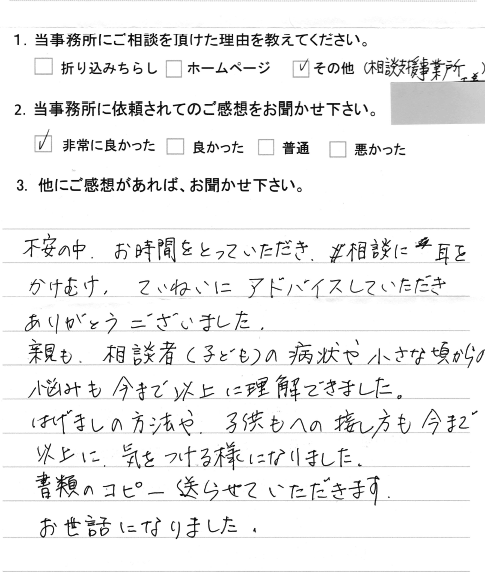 1. 当事務所にご相談を頂けた理由を教えてください。
折り込みちらし ホームページ その他 (相談支援事業所 )
2. 当事務所に依頼されてのご感想をお聞かせ下さい。
非常に良かった 良かった 普通 悪かった
3. 他にご感想があれば、お聞かせ下さい。
不安の中、お時間をとっていただき、相談に耳を
かけむけ、ていねいにアドバイスしていただき
ありがとうございました。
親も、相談者(子ども)の病状や小さな頃からの
悩みも今まで以上に理解できました。
はげましの方法や、子供もへの接し方も今まで
以上に、気をつける様になりました。
書類のコピー送らせていただきます。
お世話になりました。